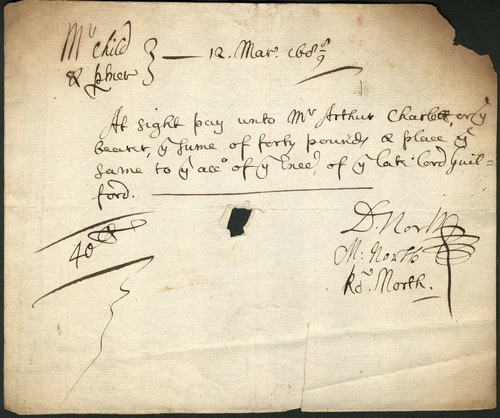 Mr Child
& ptner } — 12. Mar. 1688/9
At sight pay unto Mr Arthur Charlett, or ye
bearer, ye sume of forty pounds & place ye
same to ye acco of ye Exers of ye late lord Guil=
ford.
40
D. North
M: North
Ro: North.